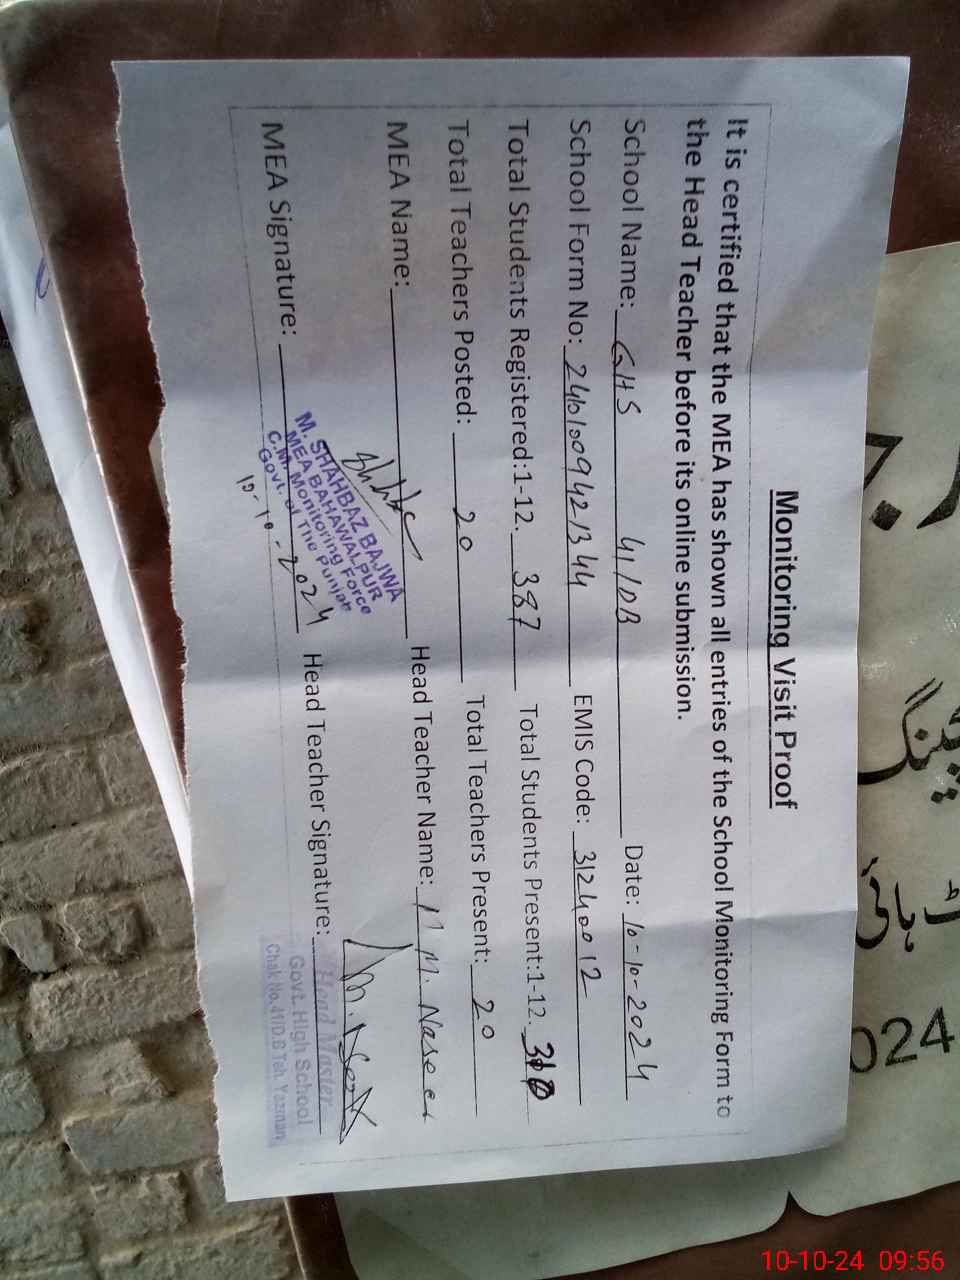 Monitoring Visit Proof
It is certified that the MEA has shown all entries of the School Monitoring Form to
the Head Teacher before its online submission.
School Name: GHS 41/DB Date: 10-10-2024
School Form No: 24101009421344 EMIS Code: 31240012
Total Students Registered:1-12. 387 Total Students Present:1-12. 310
Total Teachers Posted: 20 Total Teachers Present: 20
MEA Name: Head Teacher Name: M. Naseer
MEA Signature: Head Teacher Signature:
M. SHAHBAZ BAJWA
MEA BAHAWALPUR
C.M. Monitoring Force
Govt. of The Punjab
10-10-2024
Head Master
Govt. High School
Chak No. 41/D.B Teh. Yazman
024
10-10-24 09:56